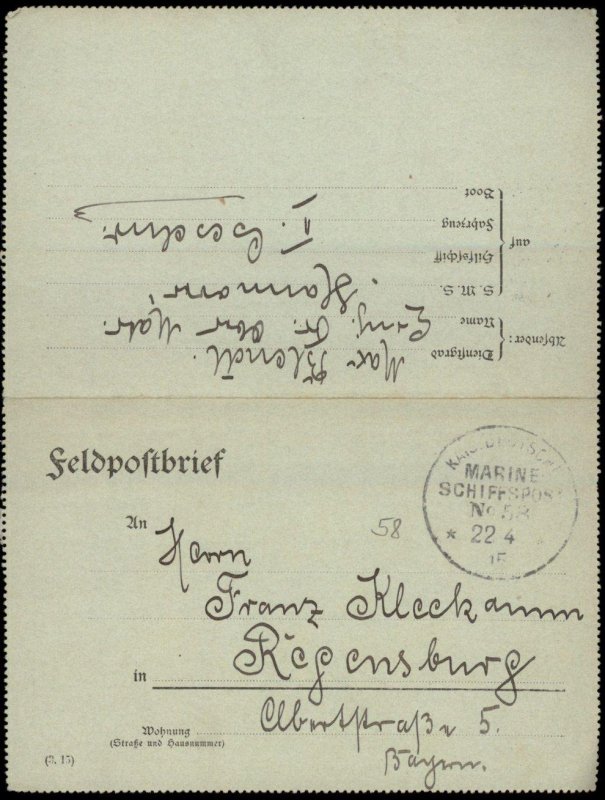 Absender:
Dienstgrad
Name
auf
S. M. S.
Hilfsschiff
Fahrzeug
Boot
Max
Einj. Fr. Ober Matr.
"Hannover"
II.
Feldpostbrief
KAIS. DEUTSCHE
MARINE
SCHIFFSPOST
No 58
* 22 4
15
An
58
Herrn
Franz Kleckamm
in Regensburg
Albertstraße 5.
Wohnung
(Straße und Hausnummer)
(3. 15)
Bayern.